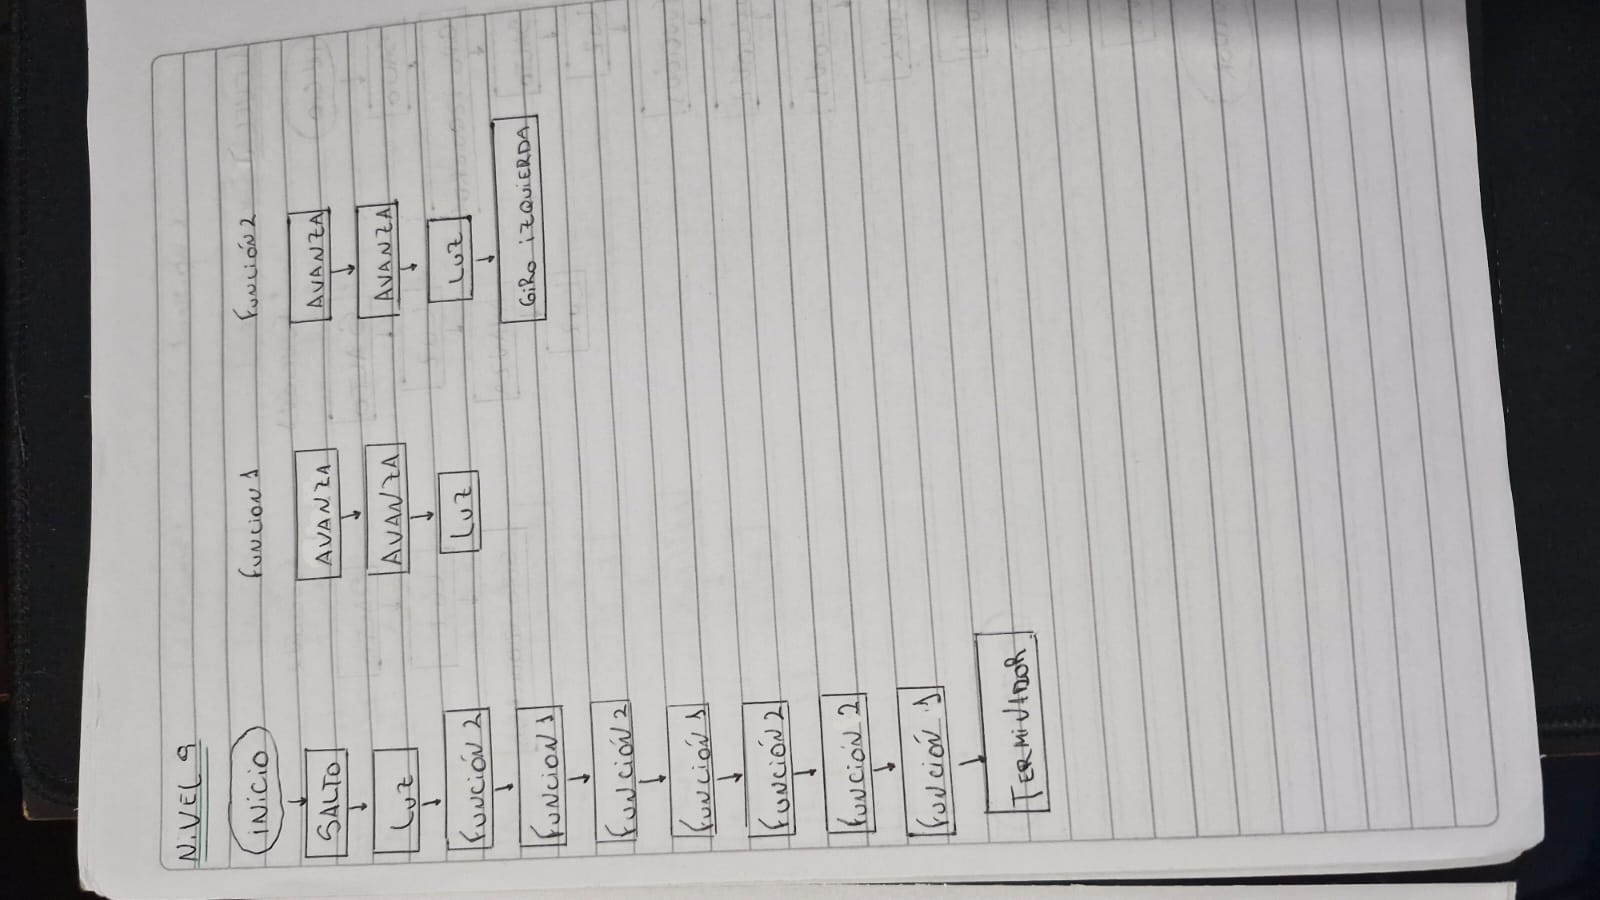 NIVEL 9
INICIO
SALTO
LUZ
FUNCIÓN 2
FUNCION 1
FUNCIÓN 2
FUNCIÓN 1
FUNCIÓN 2
FUNCIÓN 2
FUNCIÓN 1
TERMINADOR
FUNCION 1
AVANZA
AVANZA
LUZ
FUNCIÓN 2
AVANZA
AVANZA
LUZ
GIRO IZQUIERDA